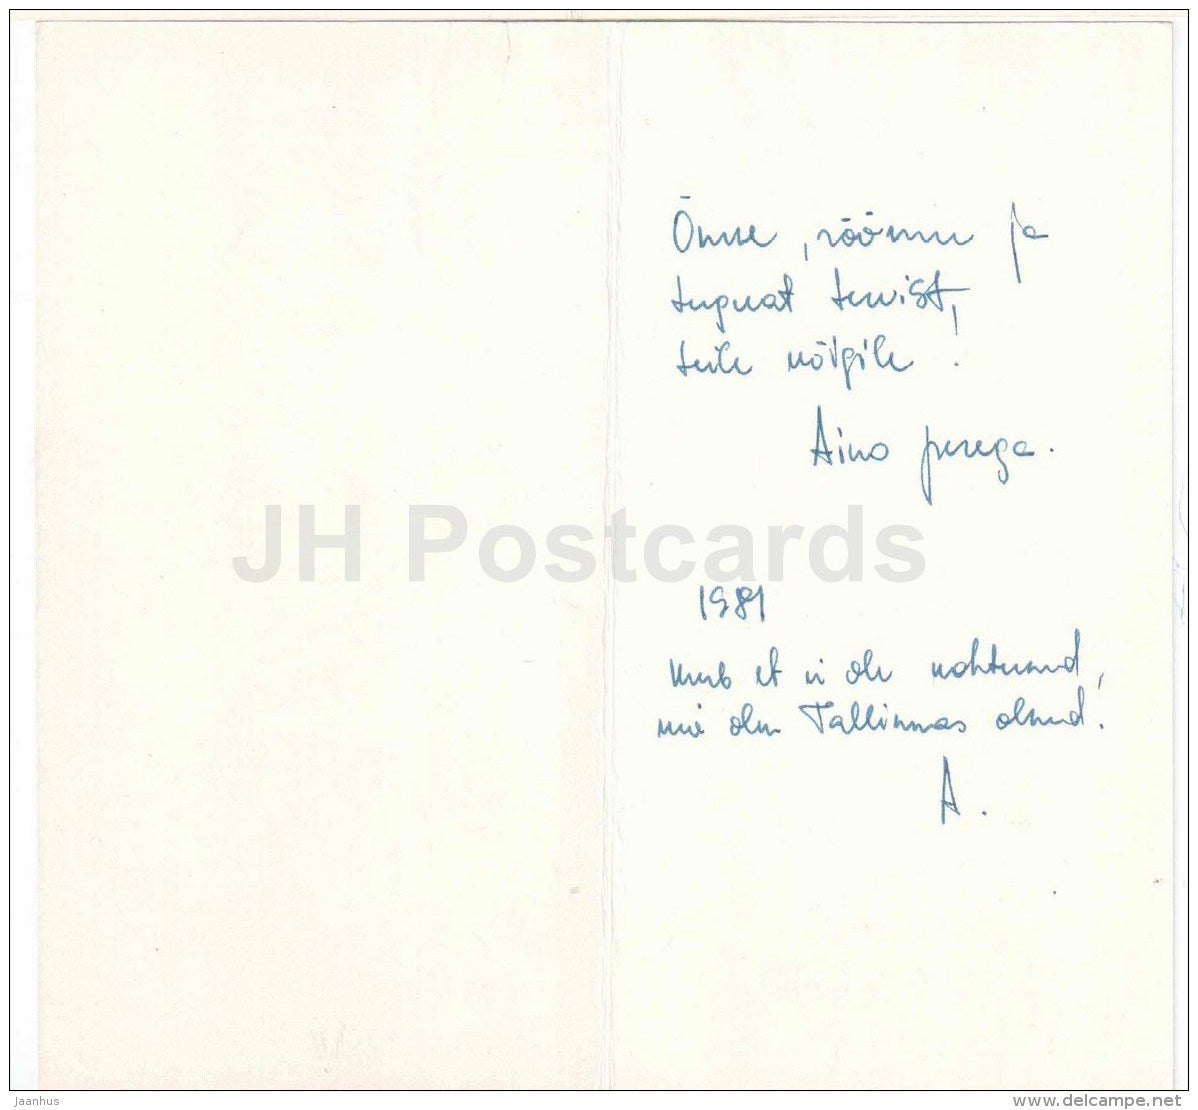 Õnne, rõõmu ja
tugevat tervist,
teile kõigile!
Aino perega.
JH Postcards
1981
Kurb et ei ole kohtunud,
me olen Tallinnas olnud.
A.
Jaanhus
delcampe.net